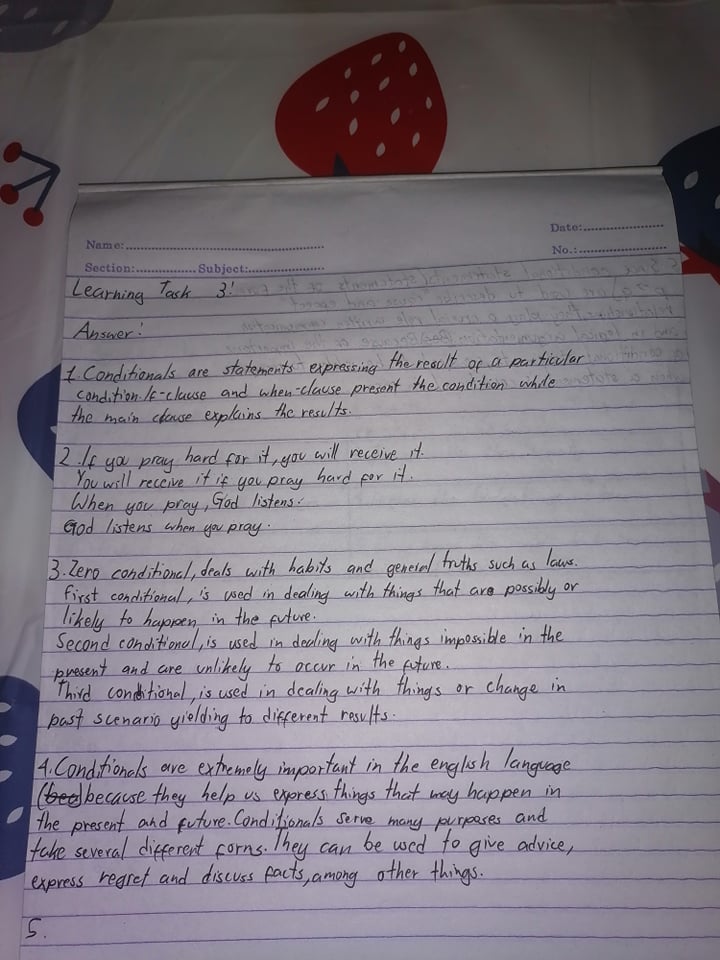 Name:
Date:
No.:
Section: Subject:
Learning Task 3!
Answer!
1. Conditionals are statements expressing the result of a particular
condition. If-clause and when-clause present the condition while
the main clause explains the results.
2. If you pray hard for it, you will receive it.
You will receive it if you pray hard for it.
When you pray, God listens.
God listens when you pray.
3. Zero conditional, deals with habits and general truths such as laws.
First conditional, is used in dealing with things that are possibly or
likely to happen in the future.
Second conditional, is used in dealing with things impossible in the
present and are unlikely to occur in the future.
Third conditional, is used in dealing with things or change in
past scenario yielding to different results.
4. Conditionals are extremely important in the english language
(bec) because they help us express things that may happen in
the present and future. Conditionals serve many purposes and
take several different forms. They can be used to give advice,
express regret and discuss facts, among other things.
5.